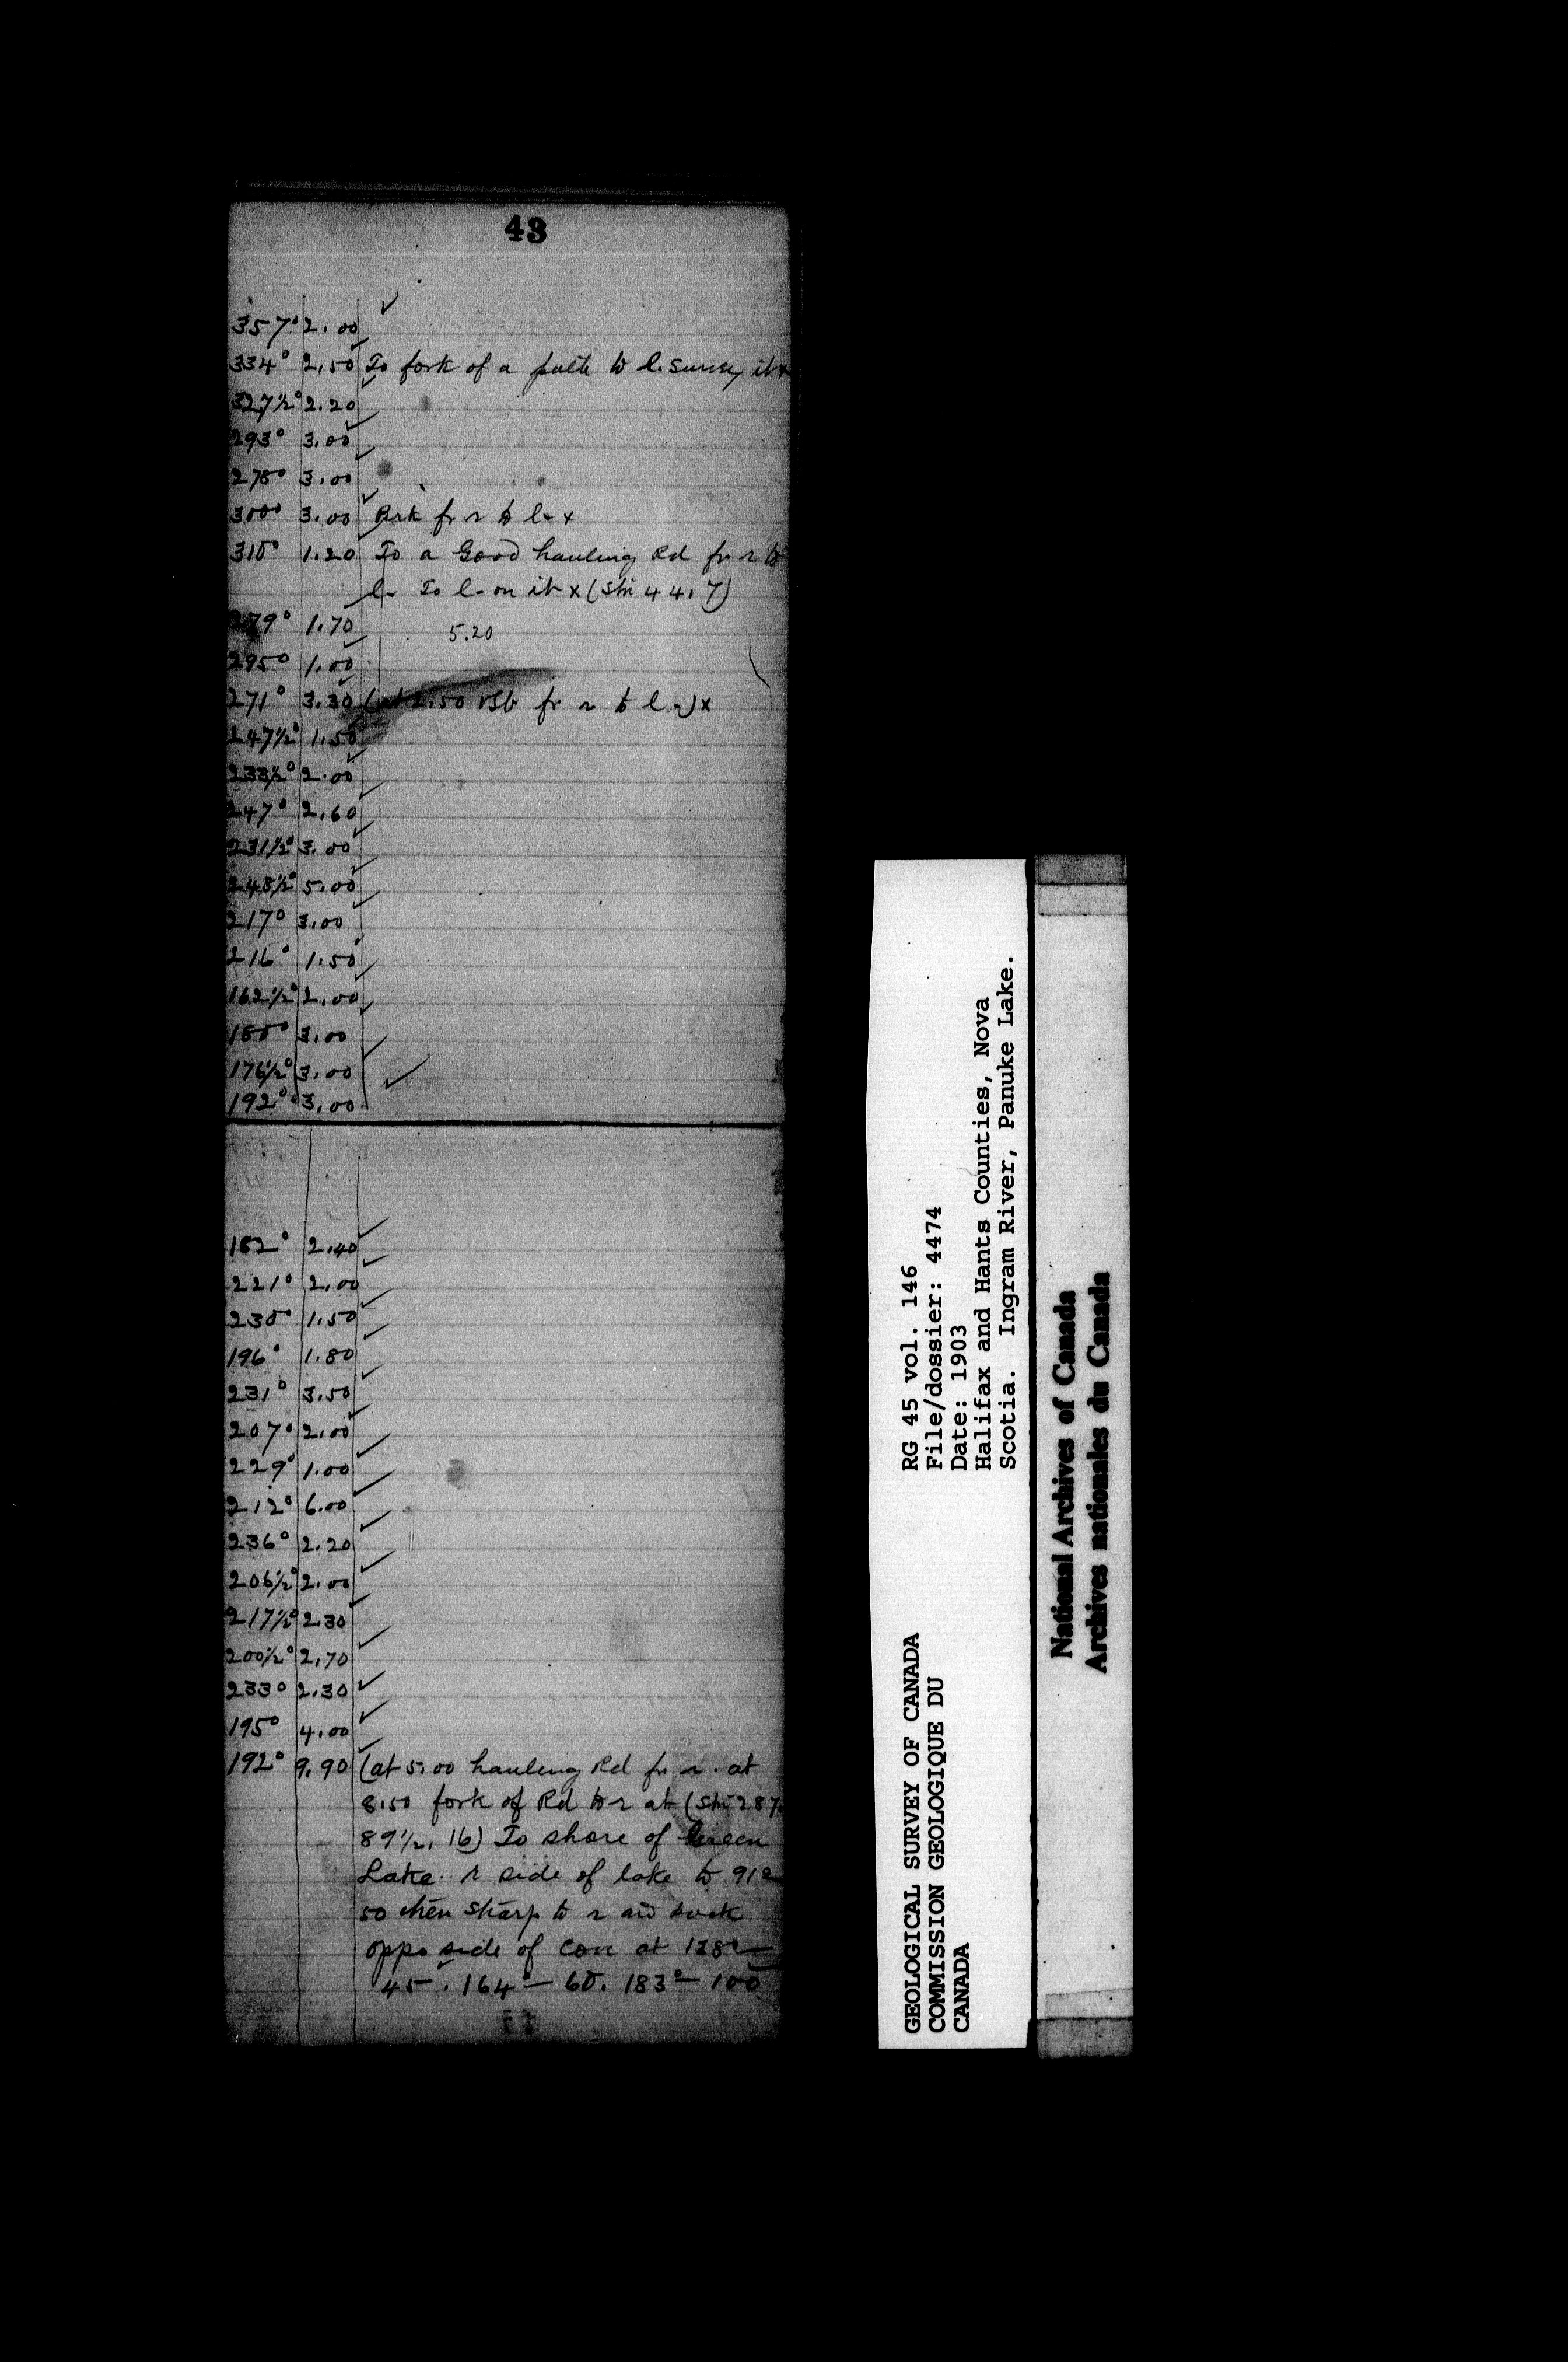 43
357° 2.00
334° 2.50 To fork of a path to l. Survey it x
327½° 2.20
293° 3.00
278° 3.00
300° 3.00 fr r to l x
315° 1.20 To a Good hauling Rd fr r to
l To l on it x (Stn 44.7)
279° 1.70 5.20
295° 1.00
271° 3.30 (at 2.50 fr r to l) x
247½° 1.50
233½° 2.00
247° 2.60
231½° 3.00
248½° 5.00
217° 3.00
216° 1.50
162½° 2.00
180° 3.00
176½° 3.00
192° 3.00
182° 2.40
221° 2.00
230° 1.50
196° 1.80
231° 3.50
207° 2.00
229° 1.00
212° 6.00
236° 2.20
206½° 2.00
217½° 2.30
200½° 2.70
233° 2.30
195° 4.00
192° 9.90 (at 5.00 hauling Rd fr r. at
8.50 fork of Rd to r at (Stn 287
89½, 16) To shore of Green
Lake. r side of lake to 91°
50 then sharp to r and
oppo side of cove at 138°
45. 164° - 60. 183° - 100
GEOLOGICAL SURVEY OF CANADA
COMMISSION GEOLOGIQUE DU
CANADA
RG 45 vol. 146
File/dossier: 4474
Date: 1903
Halifax and Hants Counties, Nova
Scotia. Ingram River, Panuke Lake.
National Archives of Canada
Archives nationales du Canada